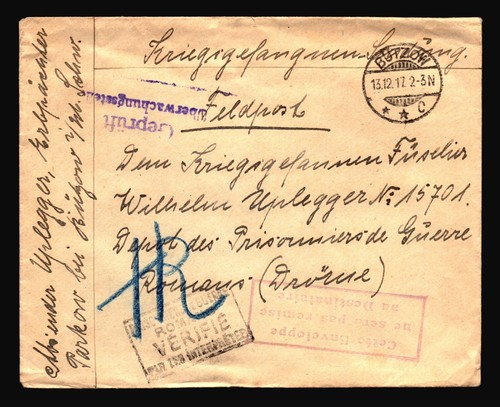 Kriegsgefangnen-Sendung.
BÜTZOW
13.12.17. 2-3N
* * C
Geprüft
Überwachungsstelle
Feldpost
Dem Kriegsgefannen Füselier
Wilhelm Uplegger No 15701.
Depot des Prisonniers de Guerre
Romans (Drôme)
HR
ROMANS
VÉRIFIÉ
PAR LES INTERPRÈTES
Cette Enveloppe
ne sera pas remise
au Destinataire
Absender Uplegger, Erbpächter
Parkow bei Bützow i/M. Schw.